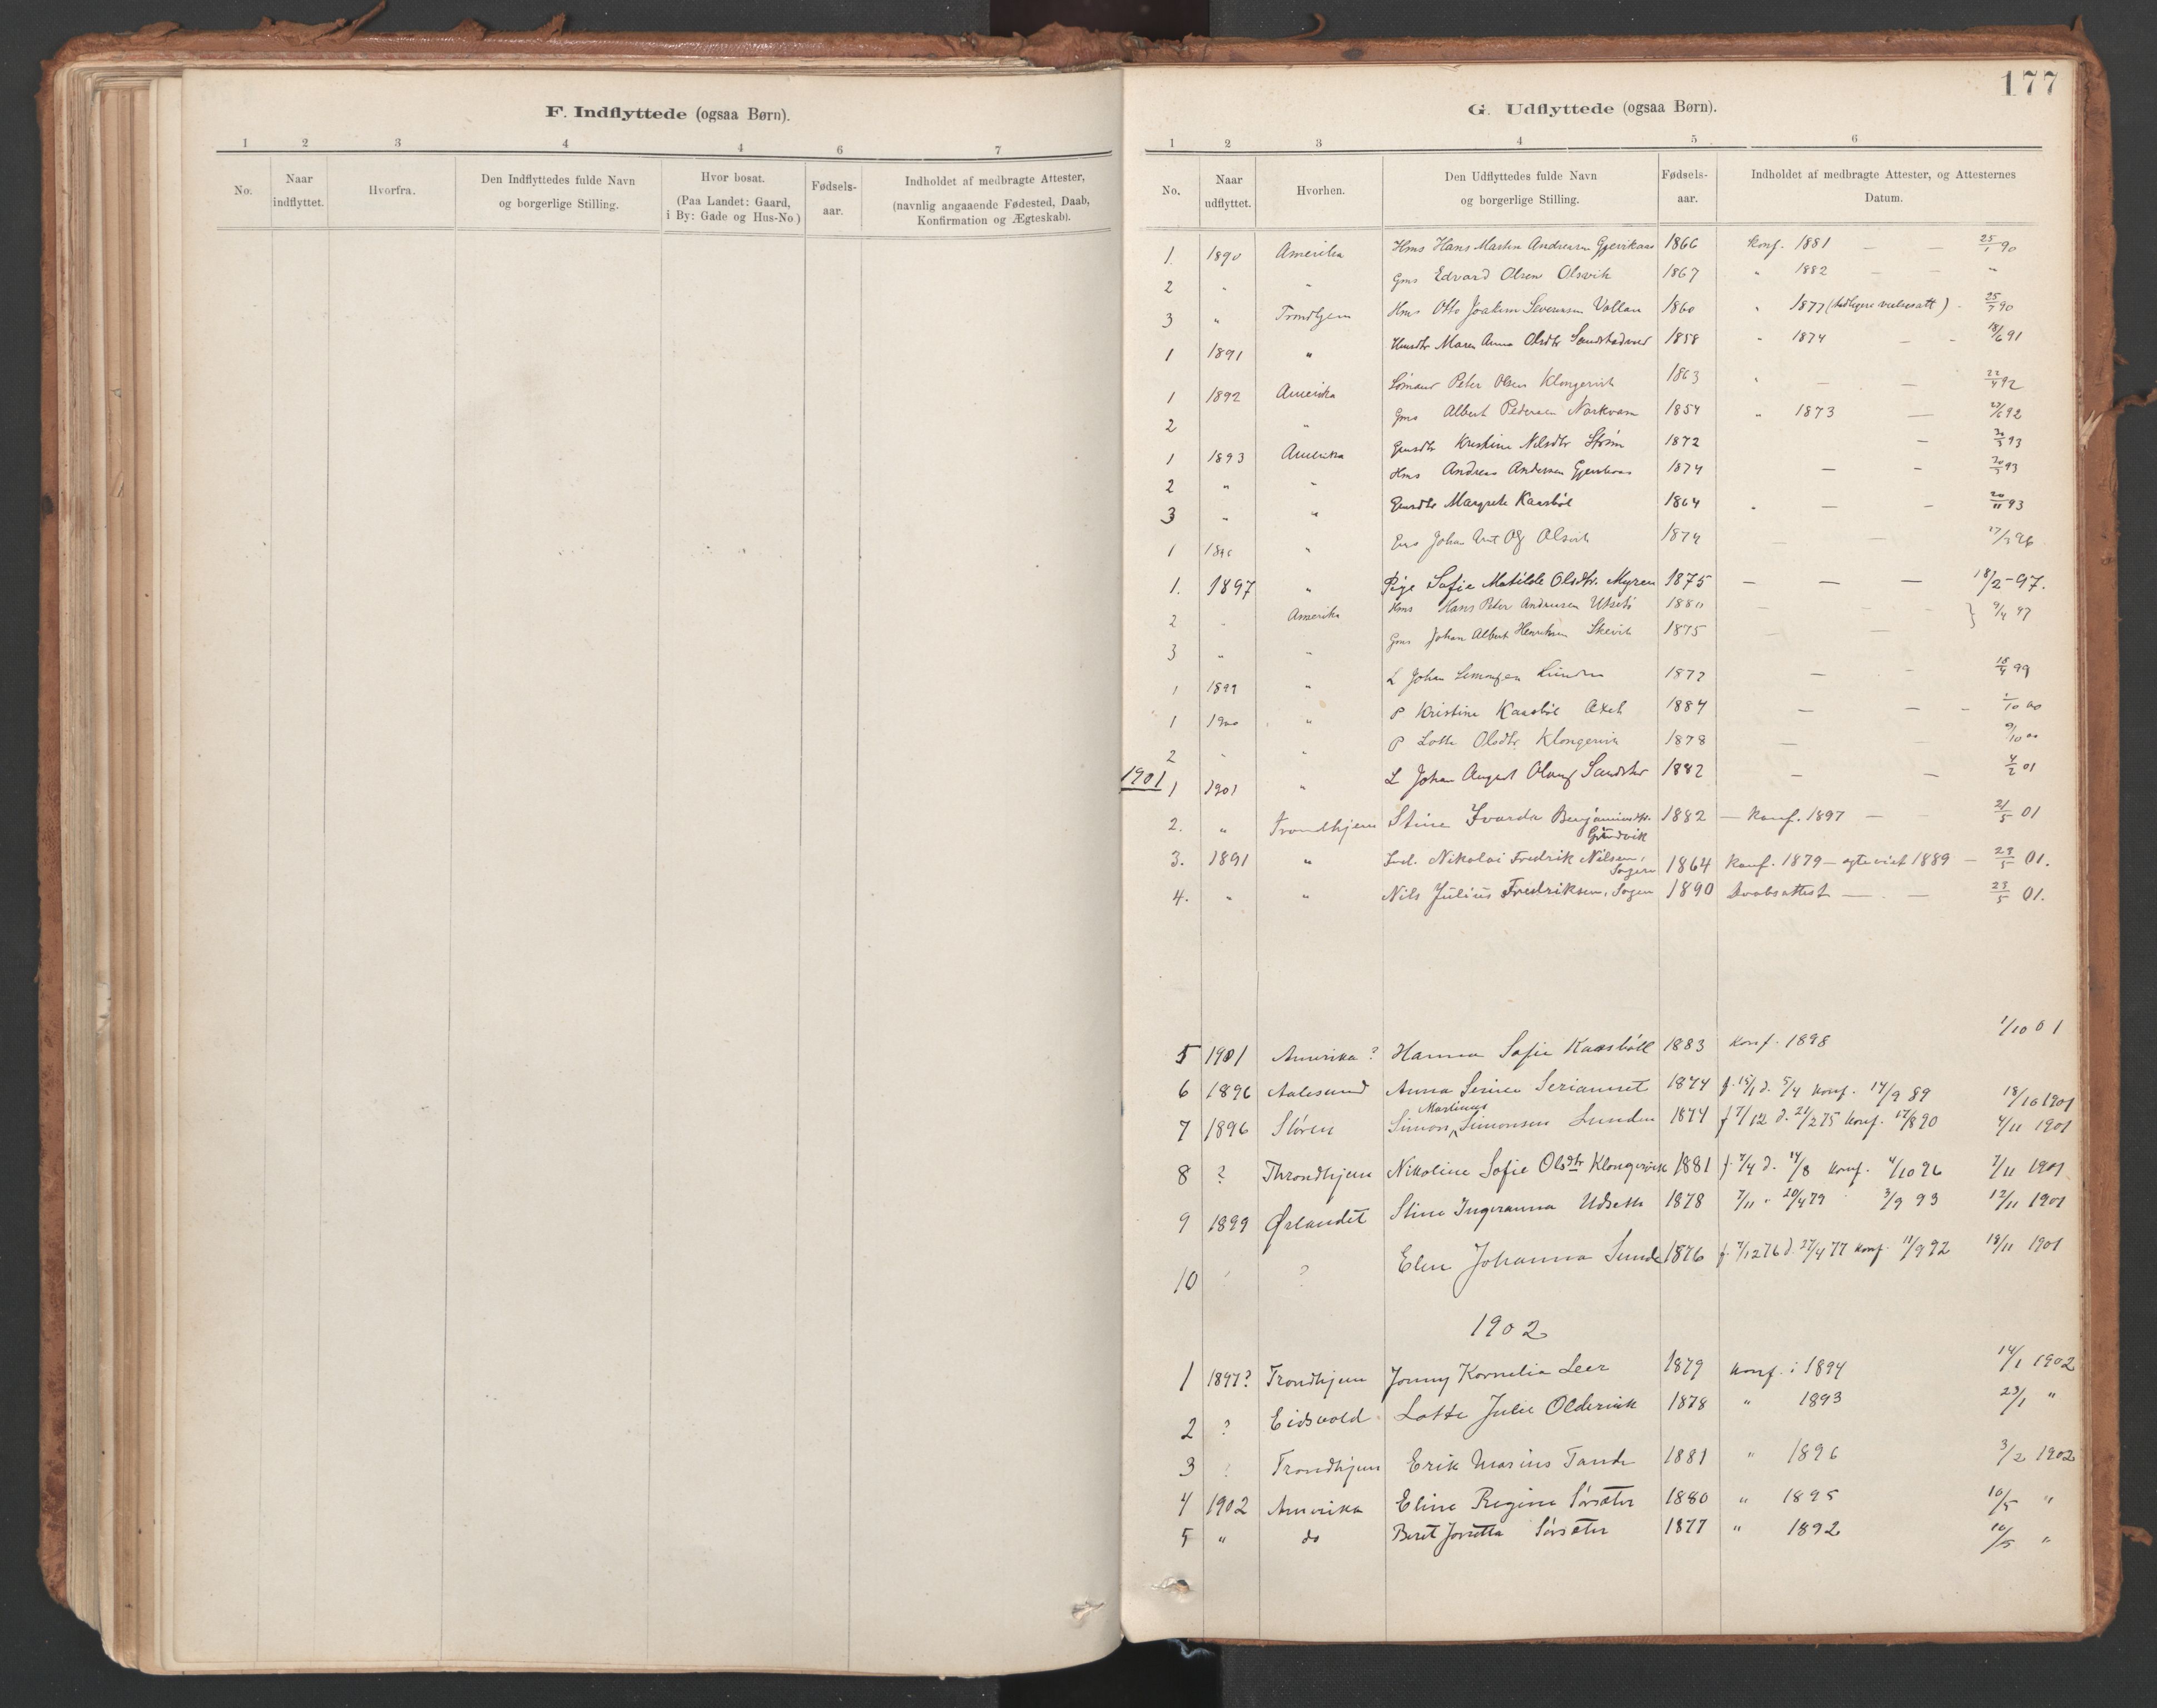 F. Indflyttede (ogsaa Børn).
1 2 3 4 4 6 7
No. Naar indflyttet. Hvorfra. Den Indflyttedes fulde Navn og borgerlige Stilling. Hvor bosat. (Paa Landet: Gaard, i By: Gade og Hus-No) Fødsels-aar. Indholdet af medbragte Attester, (navnlig angaaende Fødested, Daab, Konfirmation og Ægteskab).
177
G. Udflyttede (ogsaa Børn).
1 2 3 4 5 6
No. Naar udflyttet. Hvorhen. Den Udflyttedes fulde Navn og borgerlige Stilling. Fødsels-aar. Indholdet af medbragte Attester, og Attesternes Datum.
1. 1890 Amerika Hms Hans Martin Andreasen Gjevikaas 1866 Konf. 1881 — — 25/1 90
2 " " Gms Edvard Olsen Olsvik 1867 " 1882 — — "
3 " Trondhjem Hms Otto Joakim Severinsen Vollan 1860 " 1877 25/7 90
1 1891 " Maren Anna Olsdtr 1858 " 1874 — - 18/6 91
1 1892 Amerika Sømand Peter Olsen Klongervik 1863 " — — 22/4 92
2 " Gms Albert Pedersen 1854 " 1873 — 27/6 92
1 1893 Amerika Gmsdtr Kristine Nilsdtr Strøm 1872 — 93
2 " " Hms Andreas Andersen 1874 — - 93
3 " " Margrete Kaasböl 1864 " — - 20/11 93
1 " Johan 1874 — — 96
1. 1897 " Pige Sofie Matilde Olsdtr. Myren 1875 — — — 18/2-97.
2 " Amerika Hms Hans Peter Andreasen — — } 9/4 97
3 " " Gms Johan Albert Henriksen Skevik 1875 — —
1 1899 " L Johan Lunden 1872 — - 18/4 99
1 1900 " P Kristine Kaasböl 1884 — — - 1/10 00
2 " " P Lotte Olsdtr Klongervik 1878 — — 9/10 00
1901 1 1901 " L Johan August 1882 — — 4/2 01
2. " Trondhjem Stine Ivarda Benjaminsdtr. 1882 — Konf. 1897 — — 21/5 01
Grundvik
3. 1891 " Nikolai Fredrik Nilsen, 1864 Konf. 1879 — ægteviet 1889 — 23/5 01.
Sagen
4. " " Nils Julius Fredriksen, Sagen 1890 Daabsattest — . — 23/5 01.
5 1901 Amerika? Hanna Sofie Kaasböll 1883 Konf. 1898 1/10 01
6 1896 Aalesund Anna Serine Seriannet 1874 f. 15/1 d. 5/4 konf. 14/9 89 18/10 1901
Martinus
7 1896 Støren Simon Simonsen Lunden 1874 f 7/12 d. 21/2 75 konf. 17/8 90 4/11 1901
8 ? Throndhjem Nikoline Sofie Olsdtr Klongervik 1881 f. 7/4 d. 14/8 konf. 4/10 96 7/11 1901
9 1899 Ørlandet Stine Ingeranna Udseth 1878 7/11 " 20/4 79 3/9 93 12/11 1901
10 ? ? Elen Johanna Sunde 1876 f. 7/12 76 d. 27/4 77 konf. 11/9 92 18/11 1901
1902
1 1897? Trondhjem Jonny Kornelia Leer 1879 Konf. i 1894 14/1 1902
2 ? Eidsvold Lotte Julie Oldervik 1878 " 1893 23/1 "
3 ? Trondhjem Erik Marius Tande 1881 " 1896 3/2 1902
4 1902 Amerika Eline Regine Sørsæter 1880 " 1895 10/5 "
5 " do Beret Josetta Sørsæter 1877 " 1892 10/5 "